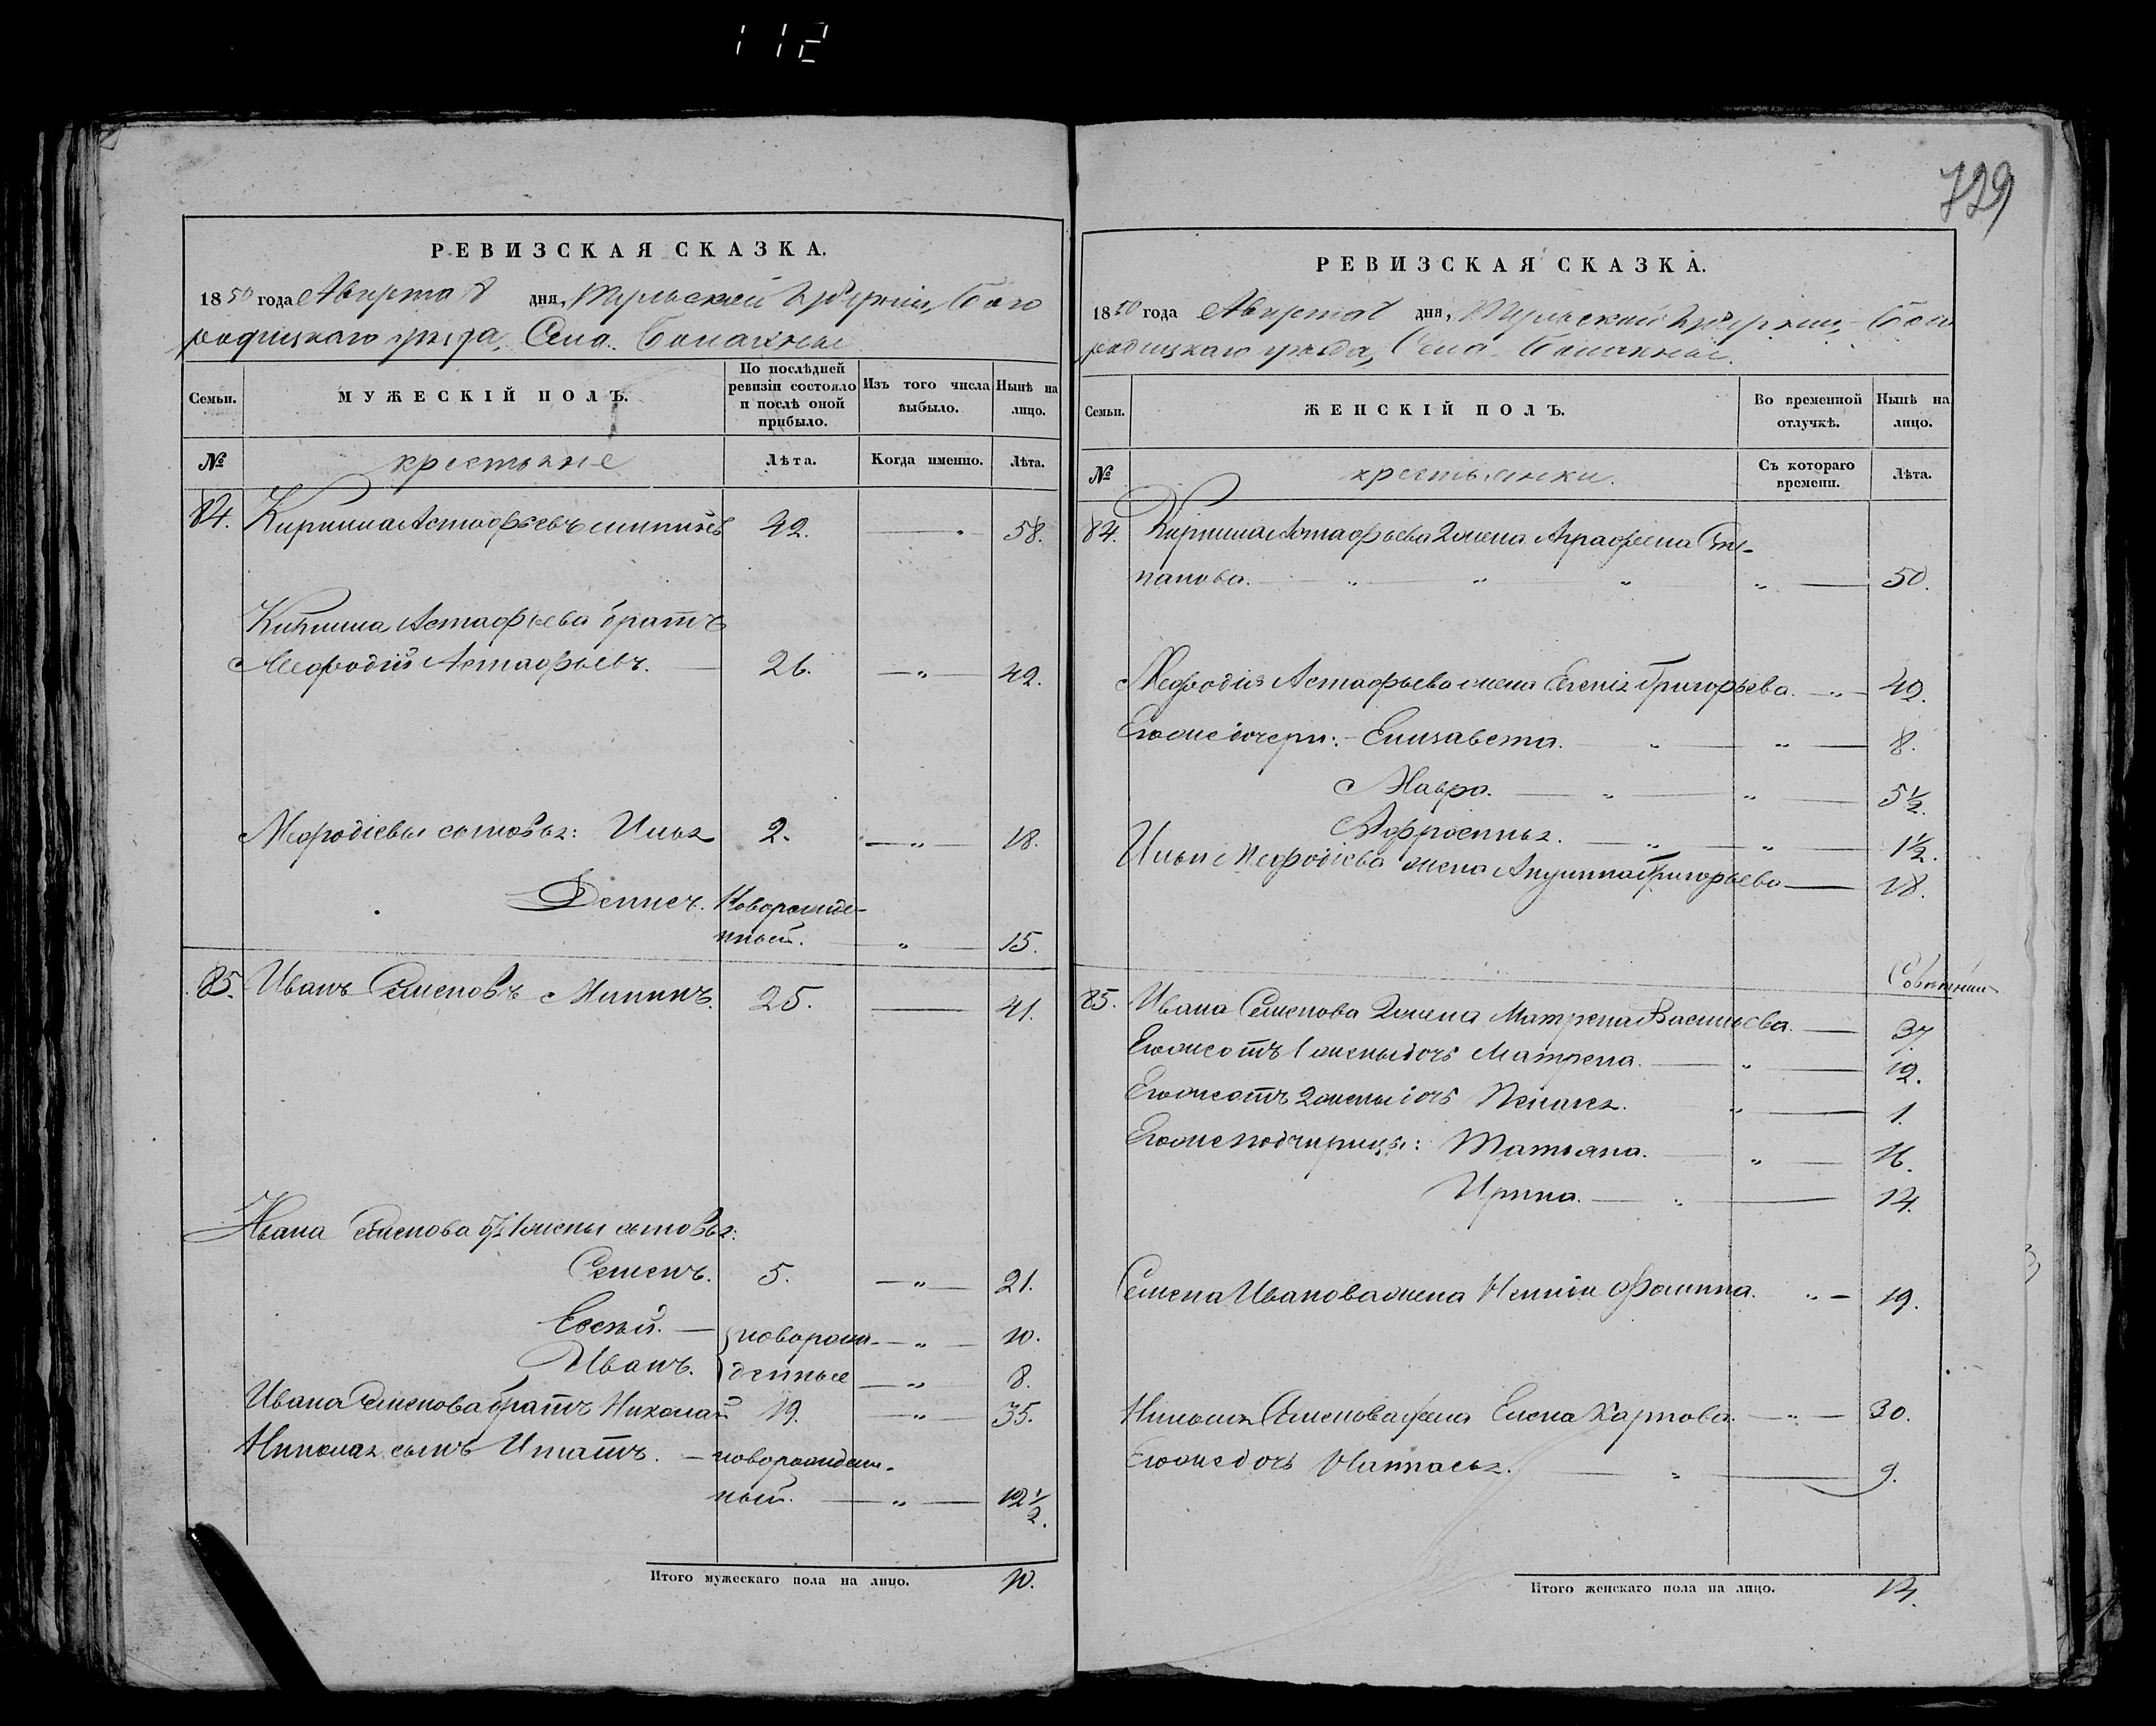 112
729
РЕВИЗСКАЯ СКАЗКА.
1850 года Августа дня, Тульской Губернiи, Бого
родицкаго уѣзда, Села
Семьи.
МУЖЕСКIЙ ПОЛЪ.
По послѣдней ревизiи состояло и послѣ оной прибыло.
Изъ того числа выбыло.
Нынѣ на лицо.
№
крестьяне
Лѣта.
Когда именно.
Лѣта.
84. Кирилла Астафьевъ 42. 58.
Кирилла Астафьева братъ
Мефодiй Астафьевъ. 26. — „ — 42.
Мефодiевы сыновья: Илья 2. — „ — 18.
Денисъ. Новорожде-
нный. „ — 15.
85. Иванъ Семеновъ Мининъ. 25. — 41.
Ивана Семенова отъ 1 жены сыновья:
Семенъ. 5. — „ — 21.
Евсѣй. — новорож- „ — 10.
Иванъ. денные — „ 8.
Ивана Семенова братъ Николай 19. — „ — 35.
Николая сынъ Игнатъ. — новорожден-
ный. — „ — 12½.
Итого мужескаго пола на лицо. 10.
РЕВИЗСКАЯ СКАЗКА.
1850 года Августа дня, Тульской Губернiи, Бого
родицкаго уѣзда, Села
Семьи.
ЖЕНСКIЙ ПОЛЪ.
Во временной отлучкѣ.
Нынѣ на лицо.
№
крестьянки.
Съ котораго времени.
Лѣта.
84. Кирилла Астафьева 2 жена Аграфена Сте-
панова. „ „ „ „ — 50.
Мефодiя Астафьева жена Евгенiя Григорьева. — „ — 40.
Его же дочери: Елизавета. „ — „ — 8.
Мавра. — „ — „ — 5½.
Афросинья. — „ — „ — 1½.
Ильи Мефодiева жена Акулина Григорьева — 18.
85. Ивана Семенова 2 жена Матрена Васильева. — 37
Его же отъ 1 жены дочь Матрена. — „ — 12.
Его же отъ 2 жены дочь Пелагея. „ — 1.
Его же подчерицы: Татьяна. — „ — 16.
Ирина. — „ — 14.
Семена Иванова жена Фомина. „ — 19.
Николая Семенова жена Елена Карпова. — „ — 30.
Его же дочь Наталья. — „ — 9.
Итого женскаго пола на лицо. 14.